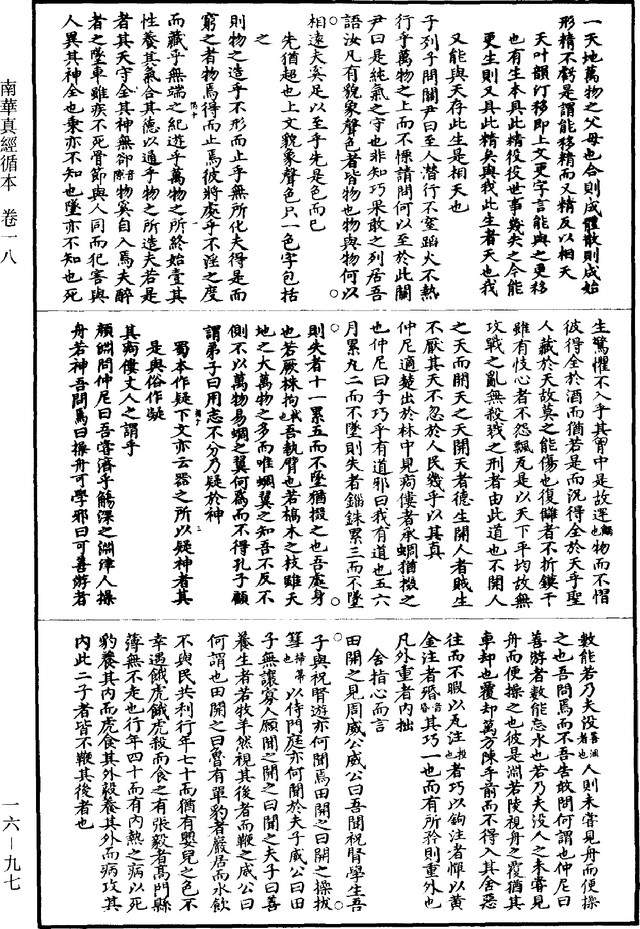 南華真經循本 卷一八
一天地萬物之父母也合則成體散則成始
形精不虧是謂能移精而又精反以相天
天叶韻汀移即上文更字言能與之更移
也有生本具此精役役世事幾失之今能
更生則又具此精矣與我此生者天也我
又能與天存此生是相天也
子列子問關尹曰至人潛行不窒蹈火不熱
行乎萬物之上而不慄請問何以至於此關
尹曰是純氣之守也非知巧果敢之列居吾
語汝凡有貌象聲色者皆物也物與物何以
相遠夫奚足以至乎先是色而已
先猶超也上文貌象聲色只一色字包括
之
則物之造乎不形而止乎無所化夫得是而
窮之者物焉得而止焉彼將處乎不淫之度
而藏乎無端之紀遊乎萬物之所終始壹其
性養其氣合其德以通乎物之所造夫若是
者其天守全其神無郤物奚自入焉夫醉
者之墜車雖疾不死骨節與人同而犯害與
人異其神全也乘亦不知也墜亦不知也死
生驚懼不入乎其胷中是故遻物而不慴
彼得全於酒而猶若是而況得全於天乎聖
人藏於天故莫之能傷也復讎者不折鏌干
雖有忮心者不怨飄瓦是以天下平均故無
攻戰之亂無殺戮之刑者由此道也不開人
之天而開天之天開天者德生開人者賊生
不厭其天不忽於人民幾乎以其真
仲尼適楚出於林中見痀僂者承蜩猶掇之
也仲尼曰子巧乎有道邪曰我有道也五六
月累丸二而不墜則失者錙銖累三而不墜
則失者十一累五而不墜猶掇之也吾處身
也若厥株拘吾執臂也若槁木之枝雖天
地之大萬物之多而唯蜩翼之知吾不反不
側不以萬物易蜩之翼何為而不得孔子顧
謂弟子曰用志不分乃疑於神
蜀本作疑下文亦云器之所以疑神者其
是與俗作凝
其痀僂丈人之謂乎
顏淵問仲尼曰吾嘗濟乎觴深之淵津人操
舟若神吾問焉曰操舟可學邪曰可善游者
數能若乃夫没人則未嘗見舟而便操
之也吾問焉而不吾告敢問何謂也仲尼曰
善游者數能忘水也若乃夫没人之未嘗見
舟而便操之也彼是淵若陵視舟之覆猶其
車却也覆却萬方陳乎前而不得入其舍惡
往而不暇以瓦注者巧以鈎注者憚以黃
金注者殙其巧一也而有所矜則重外也
凡外重者内拙
舍指心而言
田開之見周威公威公曰吾聞祝腎學生吾
子與祝腎遊亦何聞焉田開之曰開之操拔
篲以侍門庭亦何聞於夫子威公曰田
子無讓寡人願聞之開之曰聞之夫子曰善
養生者若牧羊然視其後者而鞭之威公曰
何謂也田開之曰魯有單豹者巖居而水飲
不與民共利行年七十而猶有嬰兒之色不
幸遇餓虎餓虎殺而食之有張毅者髙門縣
薄無不走也行年四十而有内熱之病以死
豹養其内而虎食其外毅養其外而病攻其
内此二子者皆不鞭其後者也
一六—九七